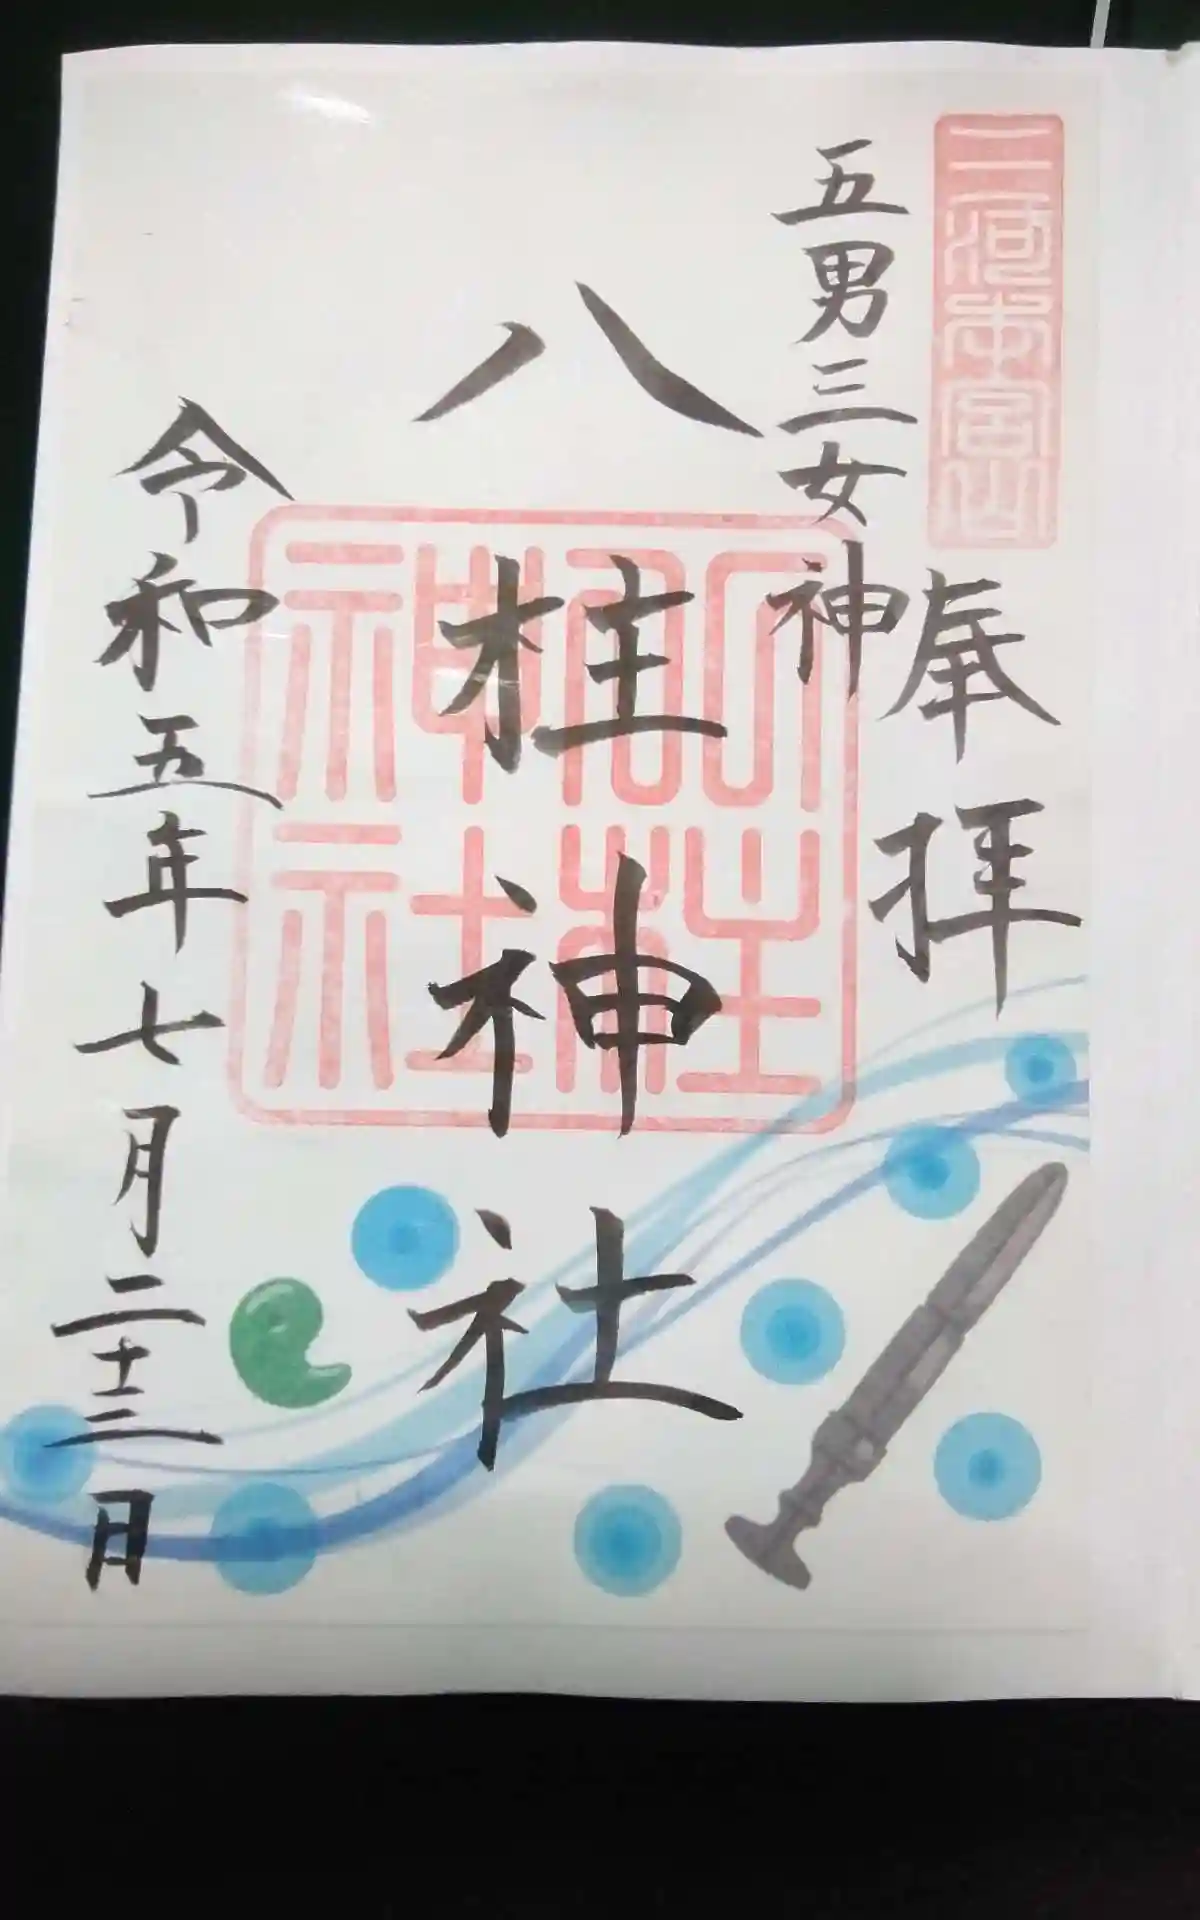 三河本宮山
奉拝
五男三女神
八柱神社
八柱
神社
令和五年七月二十三日